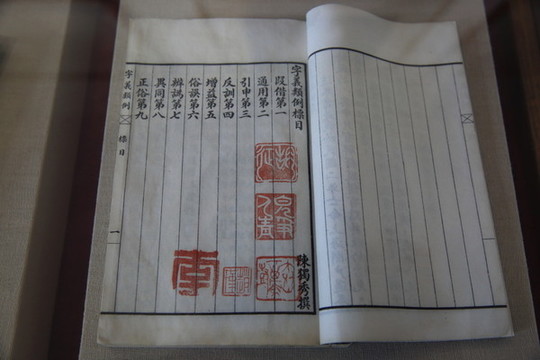 字義類例標目
陳獨秀撰
叚借第一
通用第二
引申第三
反訓第四
增益第五
俗誤第六
辨譌第七
異同第八
正俗第九
字義類例 標目 一